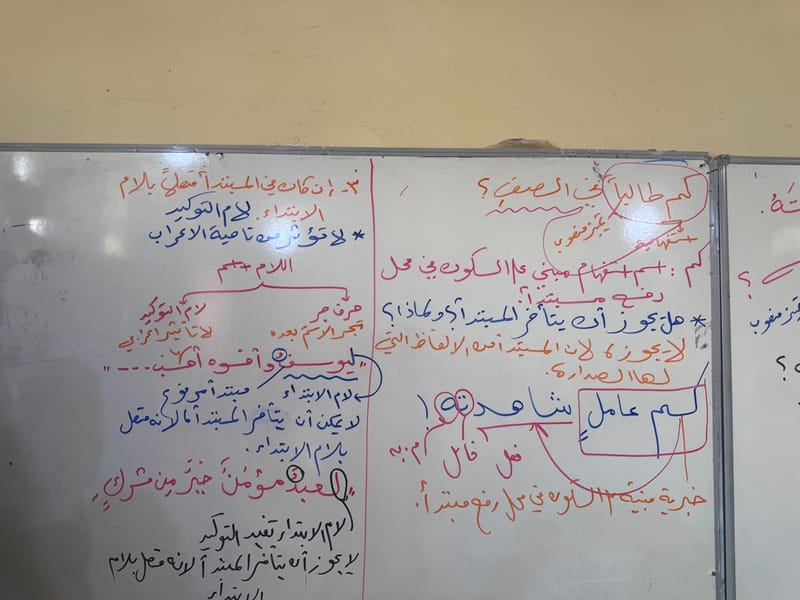 كم طالباً في الصف؟
استفهامية
تمييز منصوب
كم : اسم استفهام مبني على السكون في محل
رفع مبتدأ.
* هل يجوز أن يتأخر المبتدأ؟ ولماذا؟
لا يجوز، لان المبتدأ من الالفاظ التي
لها الصدارة.
كم عاملٍ شاهدته !
فعل فاعل م به
خبرية مبنية على السكون في محل رفع مبتدأ.
٣. إن كان في المبتدأ متصلاً بلام
الابتداء. لام التوكيد
* لا تؤثر من ناحية الاعراب
اللام + اسم
حرف جر
لام التوكيد
تجر الاسم بعده
لا تأثير اعرابي
لها
"ليوسفُ وأخوه أحب ...."
لام الابتداء
مبتدأ مرفوع
لا يمكن أن يتأخر المبتدأ لانه متصل
بلام الابتداء.
"لعبدٌ مؤمنٌ خيرٌ من مشركٍ"
لام الابتداء تفيد التوكيد
لا يجوز أن يتأخر المبتدأ لانه متصل بلام
الابتداء
؟
منصوب
؟